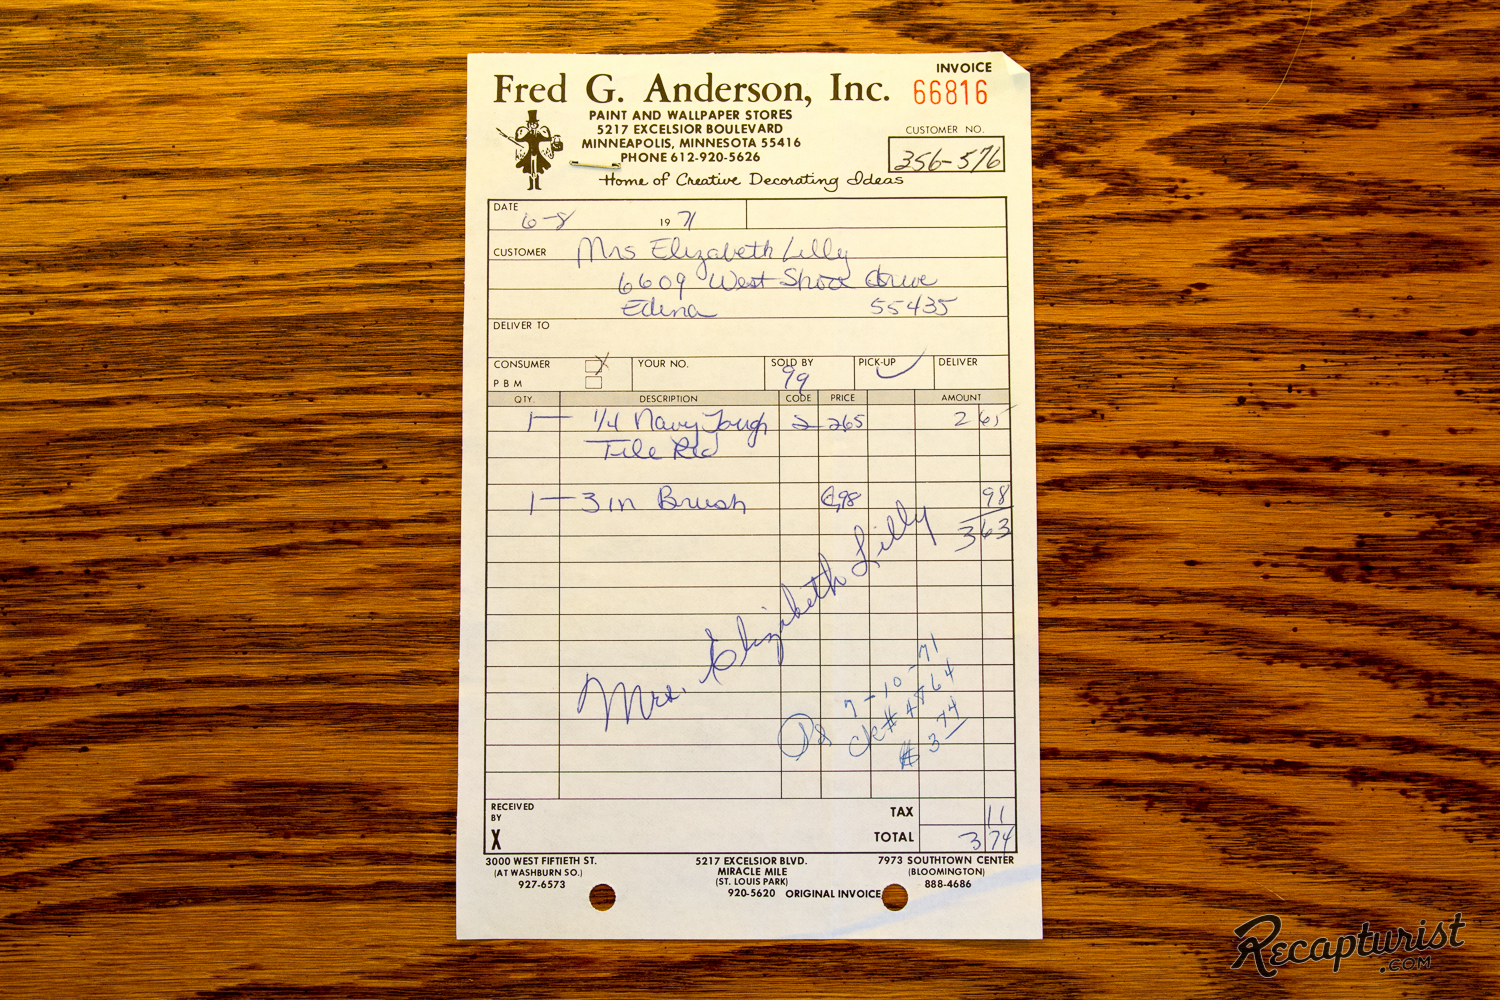 INVOICE
Fred G. Anderson, Inc. 66816
PAINT AND WALLPAPER STORES
5217 EXCELSIOR BOULEVARD
MINNEAPOLIS, MINNESOTA 55416
PHONE 612-920-5626
Home of Creative Decorating Ideas
CUSTOMER NO.
356-576
DATE 6-8 19 71
CUSTOMER Mrs Elizabeth Lilly
6609 West Shore drive
Edina 55435
DELIVER TO
CONSUMER X YOUR NO. SOLD BY 99 PICK-UP DELIVER
P B M
QTY. DESCRIPTION CODE PRICE AMOUNT
1 — 1/4 Navy Tough 2 265 2 65
Tile Red
1 — 3 in Brush .98 98
3 63
Mrs. Elizabeth Lilly
7-10-71
Pd ck# 4864
$ 3 74
RECEIVED BY TAX 11
X TOTAL 3 74
3000 WEST FIFTIETH ST. 5217 EXCELSIOR BLVD. 7973 SOUTHTOWN CENTER
(AT WASHBURN SO.) MIRACLE MILE (BLOOMINGTON)
927-6573 (ST. LOUIS PARK) 888-4686
920-5620 ORIGINAL INVOICE
Recapturist
.COM